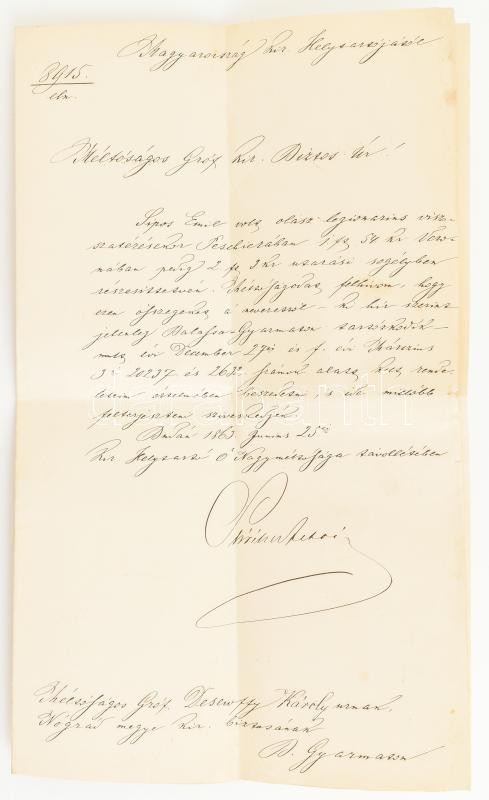 Magyarország kir. Helytartójától
8915.
eln.
Méltóságos Gróf kir. Biztos Úr!
Sipos Emil volt olasz legionarius visz-
szatérésekor Peschierában 1 ft 54 kr Vero-
nában pedig 2 ft 3 kr utazási segélyben
részesíttetvén. Méltóságodat felhívom, hogy
ezen összegeket a nevezettől – ki hír szerint
jelenleg Balassa-Gyarmaton tartózkodik –
mult évi December 27én és f. évi Márczius
3án 20237 és 2632. számok alatt kelt rende-
leteim értelmében beszedetni, s ide mielőbb
felterjeszteni sziveskedjék.
Budán 1863. Junius 25én
Kir Helytartó Ő Nagyméltósága távollétében
Méltóságos Gróf Desewffy Károly urnak,
Nógrád megye kir. biztosának
B. Gyarmaton